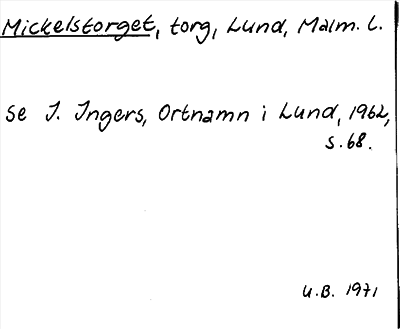 Mickelstorget, torg, Lund, Malm. L.
se I. Ingers, Ortnamn i Lund, 1962,
s. 68.
U.B. 1971